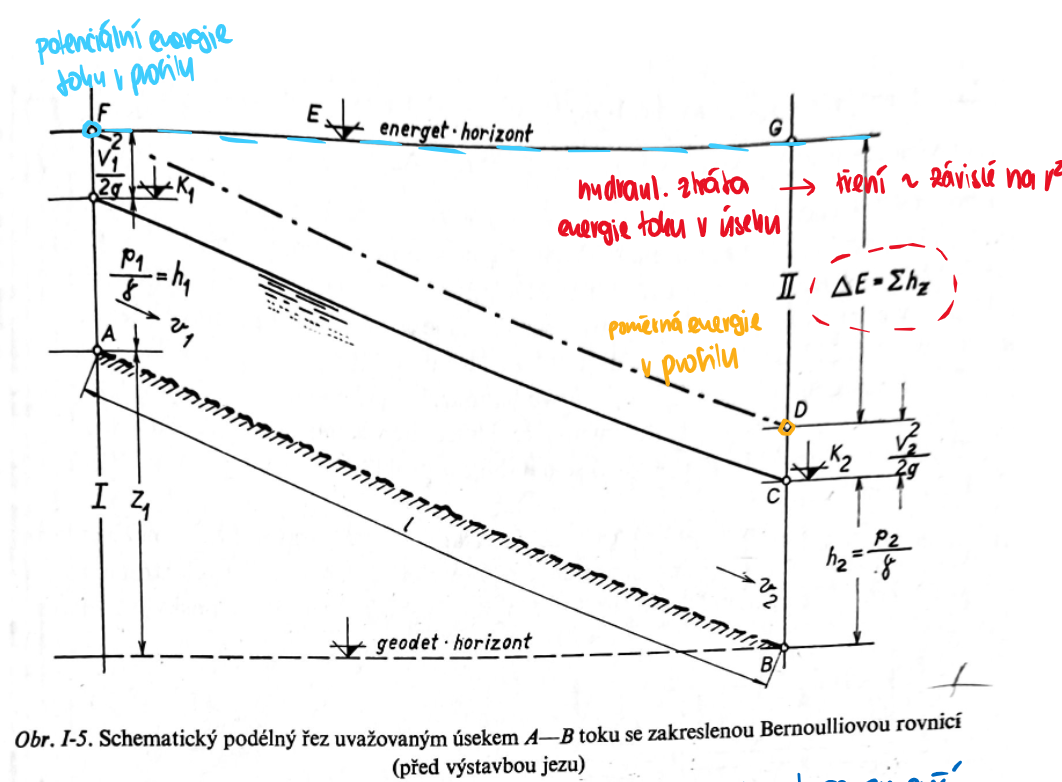 potenciální energie
toku v profilu
F
E
energet. horizont
G
V₁²
2g
K₁
hydraul. ztráta → tření ~ závislé na v²
energie toku v úseku
p₁
γ
= h₁
v₁
II
ΔE = Σh_z
A
poměrná energie
v profilu
D
K₂
V₂²
2g
C
I
Z₁
l
h₂ =
p₂
γ
v₂
geodet. horizont
B
Obr. I-5. Schematický podélný řez uvažovaným úsekem A—B toku se zakreslenou Bernoulliovou rovnicí
(před výstavbou jezu)